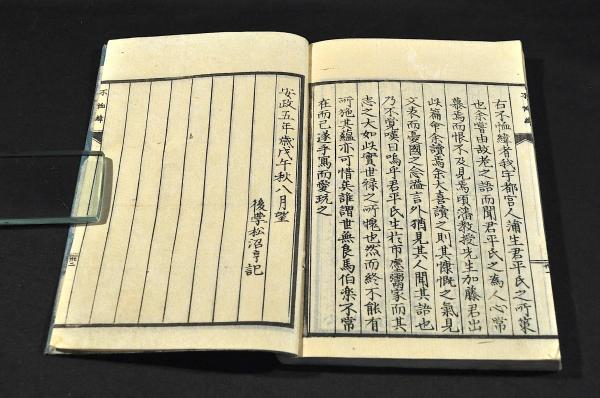 不恤緯
右不恤緯者我宇都宮人蒲生君平氏之所策
也余嘗由故老之語而聞君平氏之為人心常
慕焉而恨不及見焉頃藩教授先生加藤君出
此篇命余讀焉余大喜讀之則其慷慨之氣見
文表而憂國之念溢言外猶見其人聞其語也
乃不覚嘆曰嗚乎君平氏生於市廛鬻家而其
志之大如此實世禄之所愧也然而終不能有
所施其蘊亦可惜矣誰謂世無良馬伯楽不常
在而已遂手寫而愛玩之
安政五年歳戊午秋八月望
後學松沼亨記
不恤緯